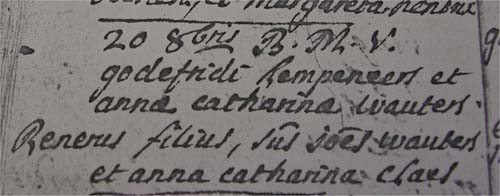 et margareta
20 8bris B. M. V.
godefridi kempeneers et
annæ catharinæ wauters.
Renerus filius, sūs joēs wauters
et anna catharina claes